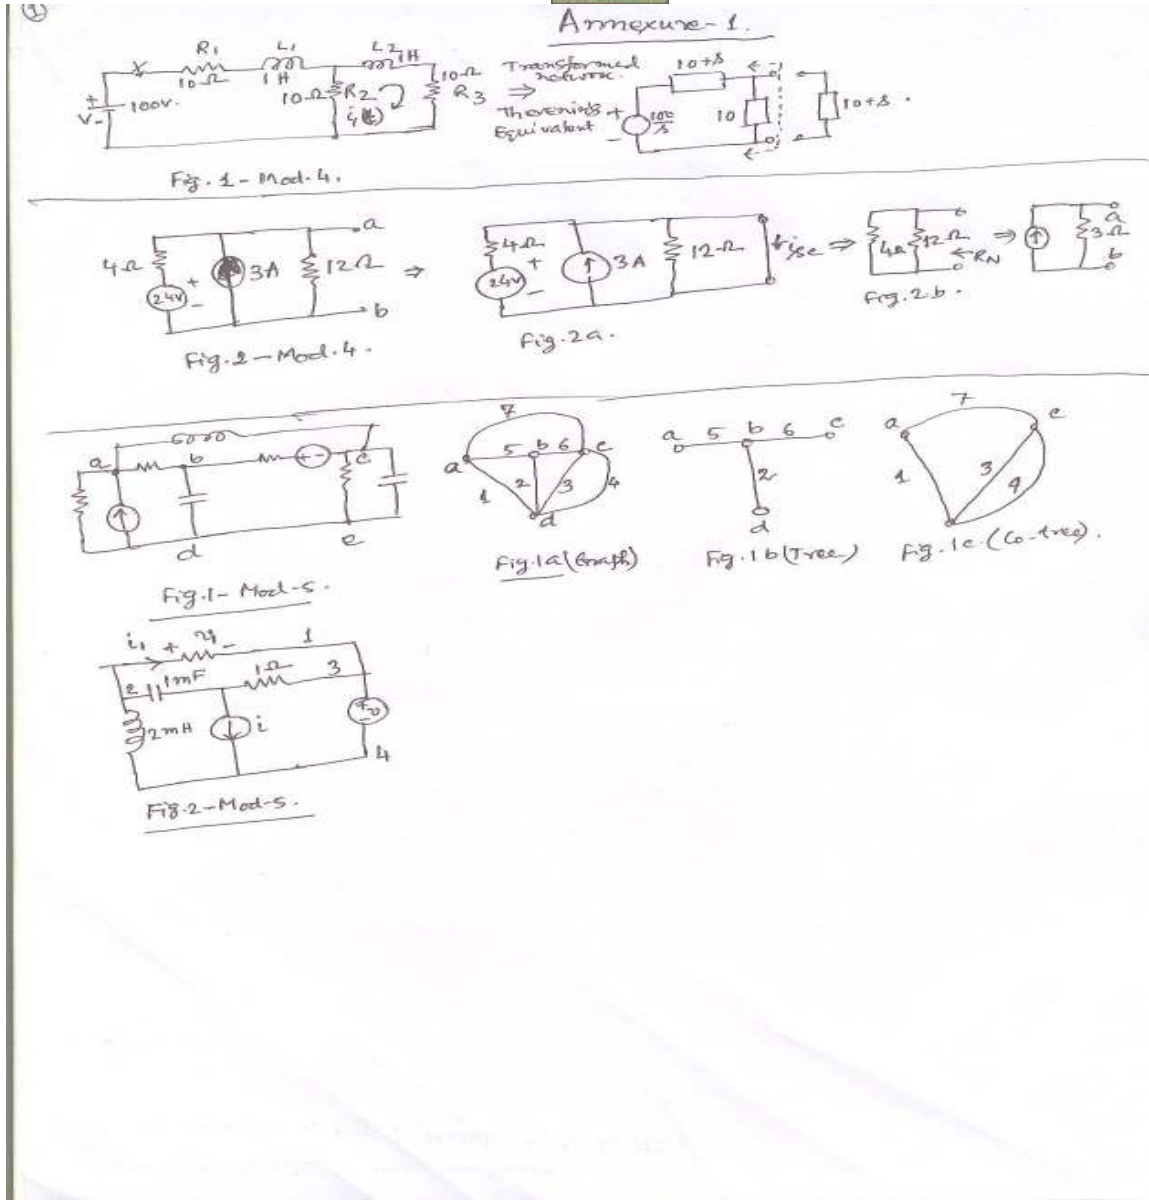 ①
Annexure-1.
R1 L1 L2
10Ω 1H 1H
+ 100V. V-
10Ω R2 i(t) 10Ω R3
⇒ Transformed network.
Thevenin's Equivalent
+ 100/s - 10+s 10 10+s.
Fig. 1-Mod.4.
4Ω 24V + - 3A 12Ω a b ⇒
Fig.2-Mod.4.
4Ω 24V + - 3A 12Ω isc ⇒
Fig.2a.
4Ω 12Ω ←RN ⇒
Fig.2.b.
a 3Ω b
a b + - c d e
Fig.1-Mod-5.
7 a 5 b 6 c 1 2 3 4 d
Fig.1a(Graph)
a 5 b 6 c 2 d
Fig.1b(Tree)
7 a c 1 3 4
Fig.1c.(Co-tree).
i1 + v1 - 1
2 1mF 1Ω 3
2mH i + v - 4
Fig.2-Mod-5.